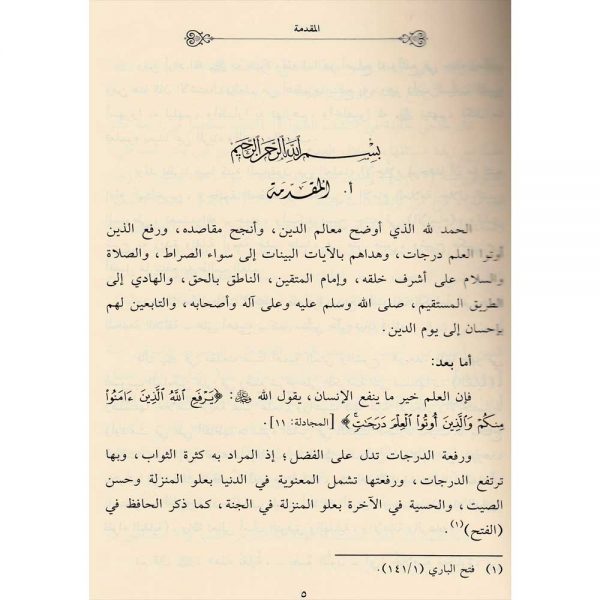 المقدمة
بسم الله الرحمن الرحيم
أ. المقدمة
الحمد لله الذي أوضح معالم الدين، وأنجح مقاصده، ورفع الذين
أوتوا العلم درجات، وهداهم بالآيات البينات إلى سواء الصراط، والصلاة
والسلام على أشرف خلقه، وإمام المتقين، الناطق بالحق، والهادي إلى
الطريق المستقيم، صلى الله وسلم عليه وعلى آله وأصحابه، والتابعين لهم
بإحسان إلى يوم الدين.
أما بعد:
فإن العلم خير ما ينفع الإنسان، يقول الله ﷻ: ﴿يَرْفَعِ ٱللَّهُ ٱلَّذِينَ ءَامَنُوا۟
مِنكُمْ وَٱلَّذِينَ أُوتُوا۟ ٱلْعِلْمَ دَرَجَٰتٍۚ﴾ [المجادلة: ١١].
ورفعة الدرجات تدل على الفضل؛ إذ المراد به كثرة الثواب، وبها
ترتفع الدرجات، ورفعتها تشمل المعنوي في الدنيا بعلو المنزلة وحسن
الصيت، والحسية في الآخرة بعلو المنزلة في الجنة، كما ذكر الحافظ في
(الفتح)(١).
(١) فتح الباري (١٤١/١).
٥